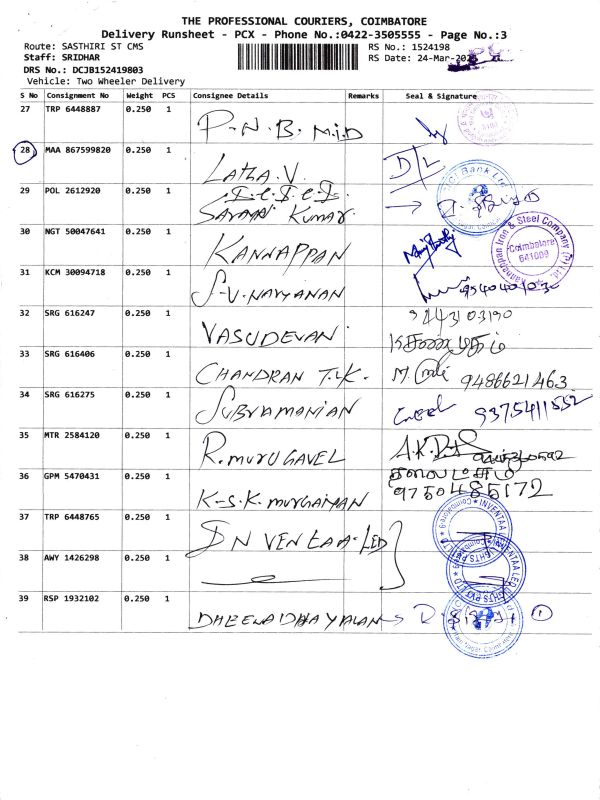 THE PROFESSIONAL COURIERS, COIMBATORE
Delivery Runsheet - PCX - Phone No.:0422-3505555 - Page No.:3
Route: SASTHIRI ST CMS
RS No.: 1524198
Staff: SRIDHAR
RS Date: 24-Mar-202
DRS No.: DCJB152419803
Vehicle: Two Wheeler Delivery
S No Consignment No Weight PCS Consignee Details Remarks Seal & Signature
27 TRP 6448887 0.250 1 P.N.B. M.I.D
28 MAA 867599820 0.250 1 LATHA.V. D/L
29 POL 2612920 0.250 1 SARAVAN KUMAR
ICICI Bank Ltd
30 NGT 50047641 0.250 1 KANNAPPAN
Kannappan Iron & Steel Company (P) Ltd.
Coimbatore
641009
31 KCM 30094718 0.250 1 S-V-NARYANAN
32 SRG 616247 0.250 1 VASUDEVAN 9443103190
33 SRG 616406 0.250 1 CHANDRAN T.V.K. 9486621463
34 SRG 616275 0.250 1 SUBRAMANIAN
35 MTR 2584120 0.250 1 R.MURUGAVEL
36 GPM 5470431 0.250 1 K-S.K.MURGAIYAN 9750485172
37 TRP 6448765 0.250 1 IN VENTAA-LED
38 AWY 1426298 0.250 1
INVENTAA LED LIGHTS PVT LTD
Coimbatore-9
39 RSP 1932102 0.250 1 DHEENADHAYALAN